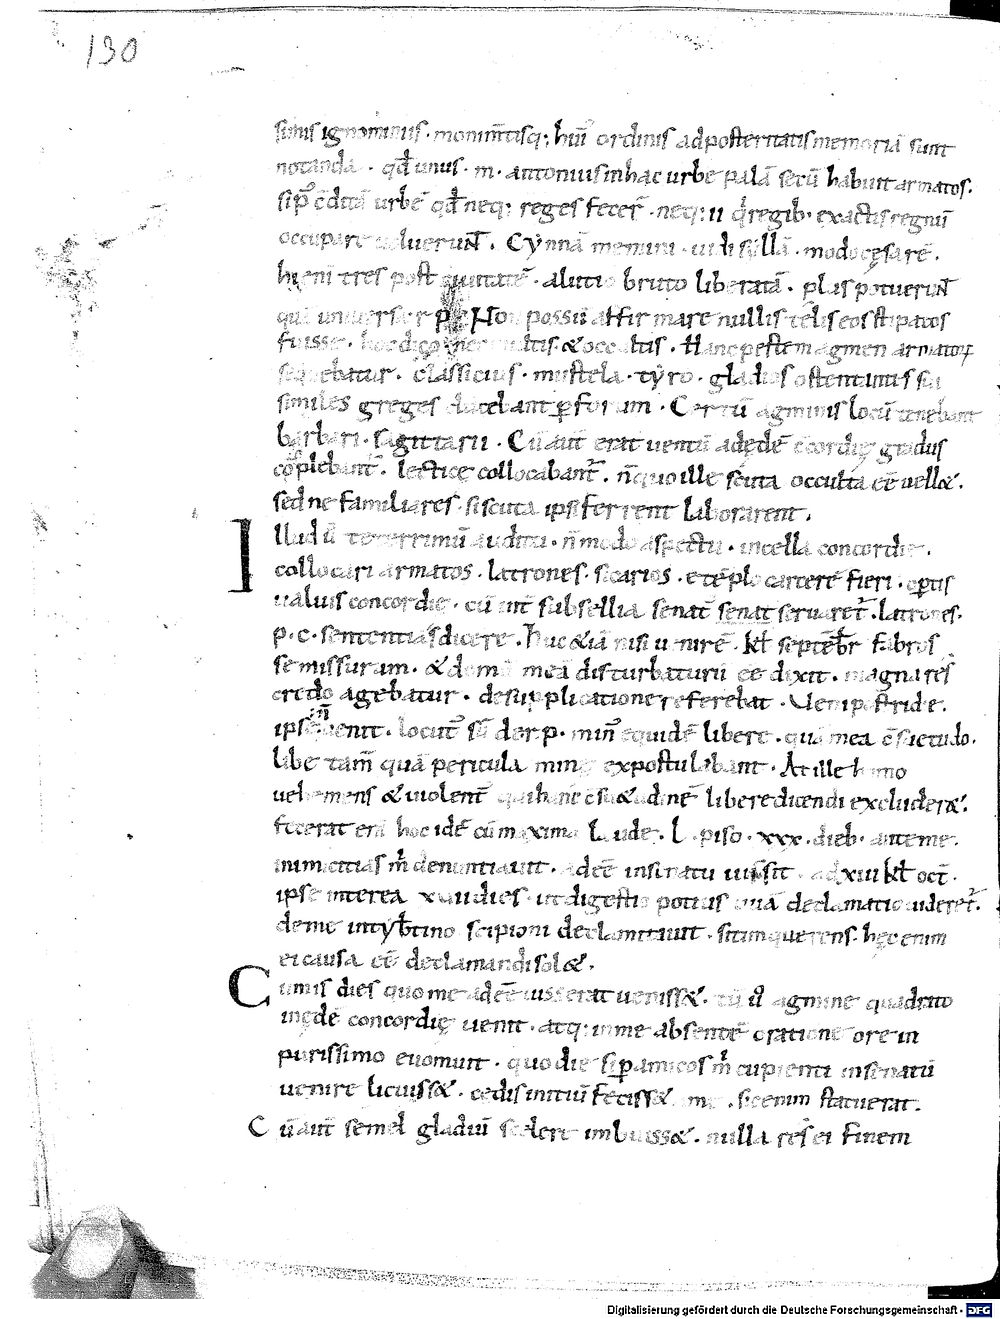 130
simis ignominiis · monim̄tisq; hui᷒ ordinis ad posteritatis memoriā sunt
notanda · qđ unus · m · antonius in hac urbe palā secū habuit armatos.
sip᷒ cditā urbē qđ neq; reges fecer̄ · neq; ii q̇ regib; exactis regnū
occupare uoluerunt̄. Cynnā memini · uidi syllā · modo cęsarē.
hi enī tres post ciuitatē · a lutio bruto liberatā · plus potuerunt̄
quā uniuersa r p · Non possū affirmare nullis telis eos stipatos
fuisse. hoc dico nec multis · & occultis. Hanc pestē magmen armatoꝝ
sequebatur. classicius · mustela · tyro · gladios ostentantis sui
similes greges ducebant ꝑ forum · Certū agminis locū tenebant
barbari · sagittarii · Cū aut̄ erat uentū ad ędē c̄cordię gradus
cōplebant᷑. lecticę collocabant᷑. n̄ quo ille scuta occulta eē uell&.
sed ne familiares · si scuta ipsi ferrent laborarent.
Illud ū teterrimū auditu · n̄ modo aspectu · in cella concordię.
collocari armatos · latrones · sicarios · e tēplo carcerē fieri · opertis
ualuis concordię · cū int̄ subsellia senat᷒ senat᷒ seruaret᷑. latrones.
p · c · sententias dicere. Huc &iā nisi uenirē · kl̄ septēbr̄ fabros
se missurum · & domū meā disturbaturū eē dixit · magna res
credo agebatur · de supplicatione referebat · Veni postridie.
ipse n̄ uenit. locut᷒ sū de r · p · min᷒ equidē libere · quā mea c̄suetudo.
libe᷒ tam̄ quā periculi minę expostulabant · At ille homo
uehemens & uiolent᷒ qui hanc c̄su&udinē libere dicendi excluder&.
fecerat eni hoc idē cū maxima laude. L · piso · xxx · dieb; ante me.
inimicitias m̄ denuntiauit · adeē in senatu iussit · ad xiii kl̄ oct̄.
ipse interea xuii dies · ut digestio potius quā declamatio uideret᷑.
de me in tyb̄tino scipioni declamitauit · sitim querens · hęc enim
ei causa eē declamandi sol&.
Cum is dies quo me adeē iusserat ueniss&. tū ū agmine quadrato
in ędē concordię uenit · atq; in me absentē orationē ore in
purissimo euomuit · quo die si p amicos m̄ cupienti in senatū
uenire licuiss&. cedis initiū feciss& me. sic enim statuerat.
Cū aut̄ semel gladiū scelere imbuiss&. nulla res ei finem
Digitalisierung gefördert durch die Deutsche Forschungsgemeinschaft - DFG